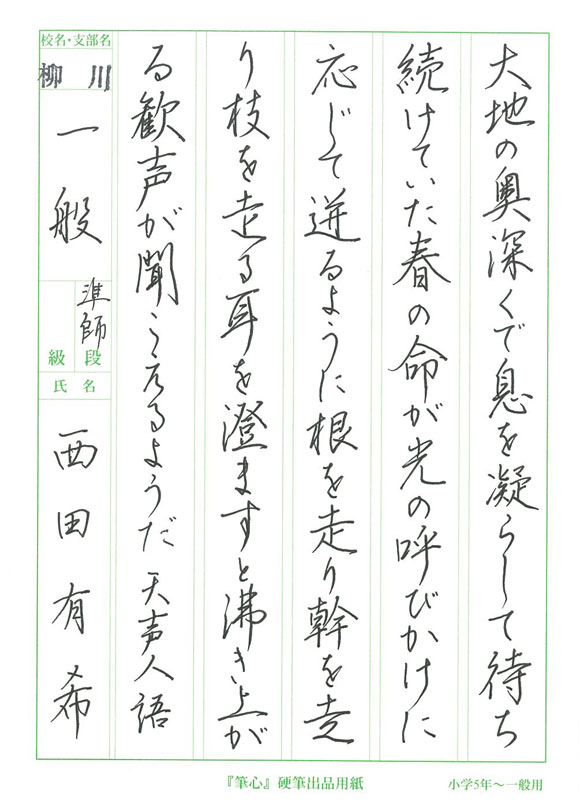 大地の奥深くで息を凝らして待ち
続けていた春の命が光の呼びかけに
応じて迸るように根を走り幹を走
り枝を走る耳を澄ますと沸き上が
る歓声が聞こえるようだ 天声人語
校名・支部名
柳川
一般
準師
級 段
氏名
西田有希
『筆心』硬筆出品用紙
小学5年〜一般用